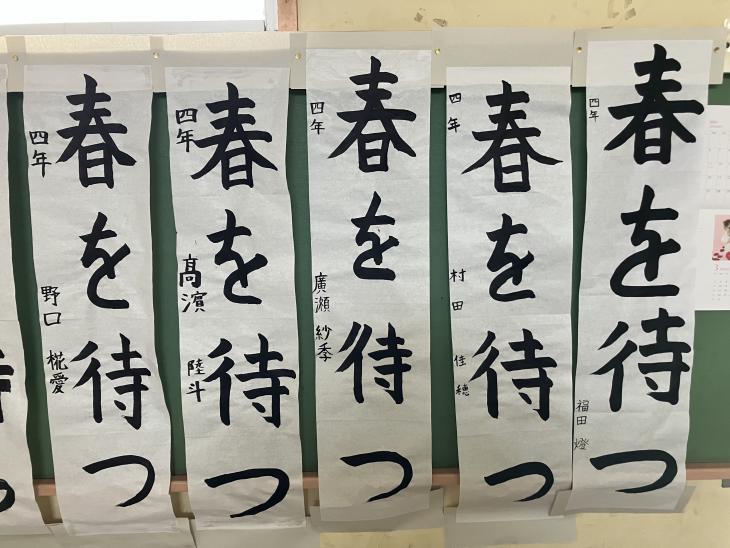 春を待つ
四年
福田 燈
春を待つ
四年
村田 佳穂
春を待つ
四年
廣瀬 紗季
春を待つ
四年
髙濵 陸斗
春を待つ
四年
野口 椛愛